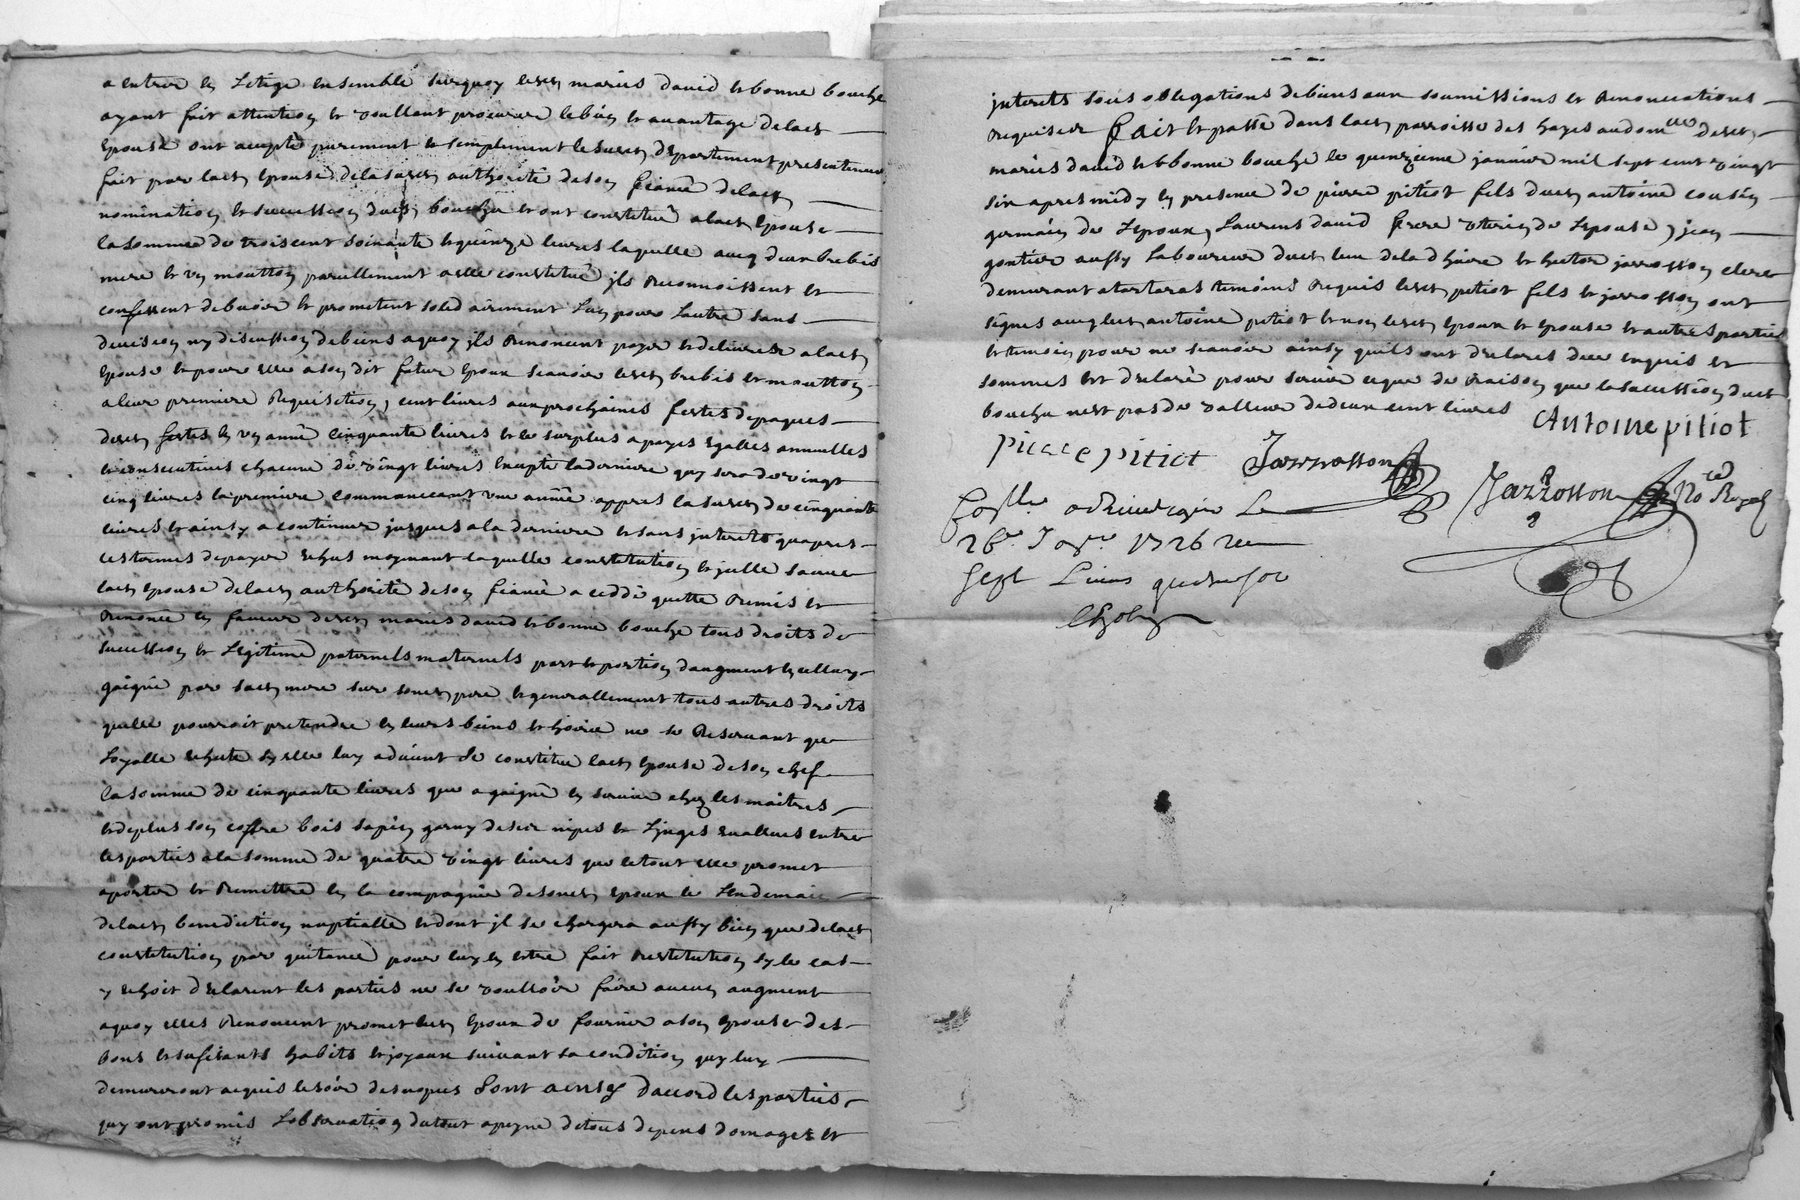 a entrer en Litige ensemble surquoy lesd mariés david et bonne bouche
ayant fait attention et voullant procurer le bien et avantage de lad
Epouse ont acepté purement et simplement le susd departement presentement
fait par lad Epouse de la susd authorité de son fiancé de lad
nomination et succession dud bouchu et ont constitué a lad Epouse
la somme de trois cent soixante et quinze livres laquelle avecq deux brebis
mere et un moutton pareillement a elle constitué jls Reconnoissent et
confessent debvoir et prometent solidairement L'un pour Lautre sans
division ny discussion de biens a quoy jls Renoncent payer et delivrer a lad
Epouse et pour elle a son dit futur Epoux scavoir lesd brebis et moutton
a leur premiere Requisition, cent livres aux prochaines festes de paques
desd festes en un année cinquante livres et le surplus a payes Egalles annuelles
et consecutives chacune de vingt livres Excepté la derniere quy sera de vingt
cinq livres la premiere commancant une année appres la susd de cinquante
livres et ainsy a continuer jusques a la derniere et sans jnterets quapres
les termes de payer Echus moyenant laquelle constitution et jcelle sauve
lad Epouse de lad authorité de son fiancé a ceddé quitté Remis et
Renoncé en faveur desd mariés david et bonne bouche tous droits de
succession et Legitime paternels maternels part et portion daugment En elluy
gaigné par sad mere sur sond pere et generallement tous autres droits
quelle pourroit pretendre en leurs biens et hoirie ne se Reservant que
Loyalle Echute sy elle luy advient se constitue lad Epouse de son chef
la somme de cinquante livres que a gaigné en service chez les maitres
et de plus son coffre bois sapin garny de ses nipes et Linges Evallues entre
les parties a la somme de quatre vingt livres que le tout elle promet
aporter et Remettre en la compagnie de sond Epoux le Lendemain
de lad benediction nuptialle et dont jl se chargera aussy bien que de lad
constitution par quitance pour luy en estre fait Restitution sy le cas
y Echoit declarent les parties ne se voulloir faire aucun augment
a quoy elles Renoncent promet led Epoux de fournir a son Epouse des
bons et sufisants habits et joyaux suivant sa condition quy luy
demureront acquis le soir des nopces Sont ainsy daccord les parties
quy ont promis Lobservation du tout a peyne de tous depens domages et
jnterets sous obligations de biens aux soumissions et Renonciations
Requises fait et passé dans lad parroisse des hayes au domlle desd
mariés david et bonne bouche le quinzieme janvier mil sept cent vingt
six apres midy en presence de pierre pitiot fils dud antoine cousin
germain de Lepoux, Laurens david frere uterin de Lepouse, jean
gontier aussy Laboureur dud lieu de la dhuire et hector jarrosson clerc
demurant a tartaras temoins Requis lesd pitiot fils et jarrosson ont
signes avec led antoine pitiot et non lesd Epoux et Epouse et autres parties
et temoin pour ne scavoir ainsy quils ont declares de ce enquis et
sommes Et declaré pour servir ce que de Raison que la succession dud
bouchu nest pas de valleur de deux cent livres
Antoine pitiot
Pierre pitiot Jarrosson
Jarrosson No.re Royal
Con.lle a Rivedegier Le
26e Janr. 1726 Reu
sept Livres quatre sol